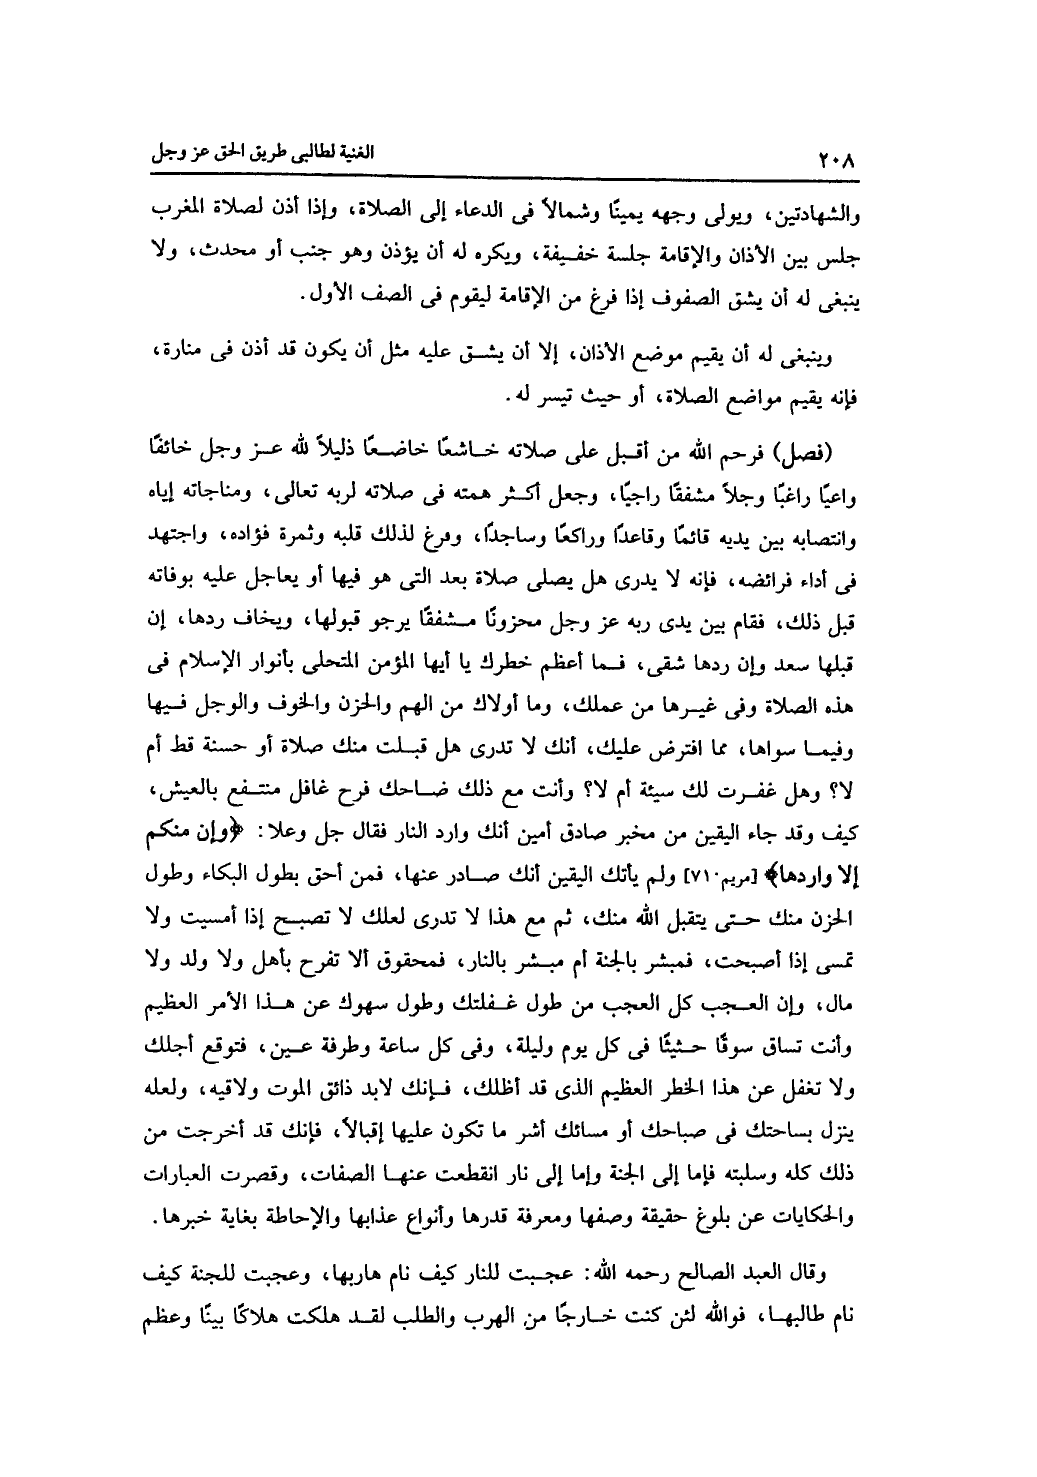 ٢٠٨ الغنية لطالبى طريق الحق عز وجل
والشهادتين، ويولى وجهه يمينًا وشمالاً فى الدعاء إلى الصلاة، وإذا أذن لصلاة المغرب
جلس بين الأذان والإقامة جلسة خفيفة، ويكره له أن يؤذن وهو جنب أو محدث، ولا
ينبغى له أن يشق الصفوف إذا فرغ من الإقامة ليقوم فى الصف الأول.
وينبغى له أن يقيم موضع الأذان، إلا أن يشق عليه مثل أن يكون قد أذن فى منارة،
فإنه يقيم مواضع الصلاة، أو حيث تيسر له.
(فصل) فرحم الله من أقبل على صلاته خاشعًا خاضعًا ذليلاً لله عز وجل خائفًا
واعيًا راغبًا وجلاً مشفقًا راجيًا، وجعل أكثر همته فى صلاته لربه تعالى، ومناجاته إياه
وانتصابه بين يديه قائمًا وقاعدًا وراكعًا وساجدًا، وفرغ لذلك قلبه وثمرة فؤاده، واجتهد
فى أداء فرائضه، فإنه لا يدرى هل يصلى صلاة بعد التى هو فيها أو يعاجل عليه بوفاته
قبل ذلك، فقام بين يدى ربه عز وجل محزونًا مشفقًا يرجو قبولها، ويخاف ردها، إن
قبلها سعد وإن ردها شقى، فما أعظم خطرك يا أيها المؤمن المتحلى بأنوار الإسلام فى
هذه الصلاة وفى غيرها من عملك، وما أولاك من الهم والحزن والخوف والوجل فيها
وفيما سواها، مما افترض عليك، أنك لا تدرى هل قبلت منك صلاة أو حسنة قط أم
لا؟ وهل غفرت لك سيئة أم لا؟ وأنت مع ذلك ضاحك فرح غافل منتفع بالعيش،
كيف وقد جاء اليقين من مخبر صادق أمين أنك وارد النار فقال جل وعلا: ﴿وإن منكم
إلا واردها﴾ [مريم٧١٠] ولم يأتك اليقين أنك صادر عنها، فمن أحق بطول البكاء وطول
الحزن منك حتى يتقبل الله منك، ثم مع هذا لا تدرى لعلك لا تصبح إذا أمسيت ولا
تمسى إذا أصبحت، فمبشر بالجنة أم مبشر بالنار، فمحقوق ألا تفرح بأهل ولا ولد ولا
مال، وإن العجب كل العجب من طول غفلتك وطول سهوك عن هذا الأمر العظيم
وأنت تساق سوقًا حثيثًا فى كل يوم وليلة، وفى كل ساعة وطرفة عين، فتوقع أجلك
ولا تغفل عن هذا الخطر العظيم الذى قد أظلك، فإنك لابد ذائق الموت ولاقيه، ولعله
ينزل بساحتك فى صباحك أو مسائك أشر ما تكون عليها إقبالاً، فإنك قد أخرجت من
ذلك كله وسلبته فإما إلى الجنة وإما إلى نار انقطعت عنها الصفات، وقصرت العبارات
والحكايات عن بلوغ حقيقة وصفها ومعرفة قدرها وأنواع عذابها والإحاطة بغاية خبرها.
وقال العبد الصالح رحمه الله: عجبت للنار كيف نام هاربها، وعجبت للجنة كيف
نام طالبها، فوالله لئن كنت خارجًا من الهرب والطلب لقد هلكت هلاكًا بينًا وعظم